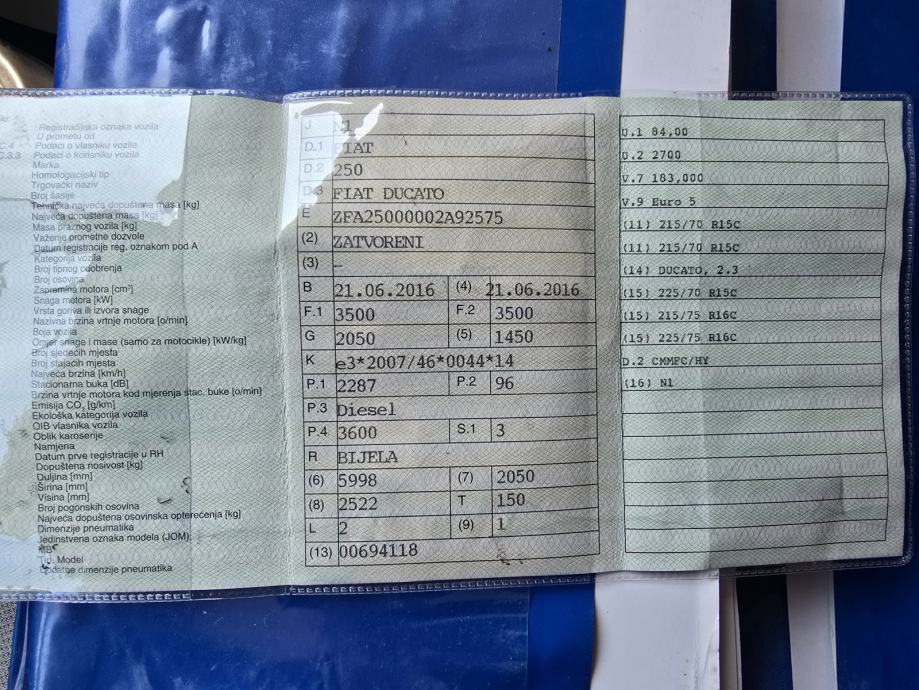 Registracijska oznaka vozila
U prometu od
C.4 Podaci o vlasniku vozila
C.3.3 Podaci o korisniku vozila
Marka
Homologacijski tip
Trgovački naziv
Broj šasije
Tehnička najveća dopuštena masa [kg]
Najveća dopuštena masa [kg]
Masa praznog vozila [kg]
Važenje prometne dozvole
Datum registracije reg. oznakom pod A
Kategorija vozila
Broj tipnog odobrenja
Broj osovina
Zapremina motora [cm³]
Snaga motora [kW]
Vrsta goriva ili izvora snage
Nazivna brzina vrtnje motora [o/min]
Boja vozila
Omjer snage i mase (samo za motocikle) [kW/kg]
Broj sjedećih mjesta
Broj stajaćih mjesta
Najveća brzina [km/h]
Stacionarna buka [dB]
Brzina vrtnje motora kod mjerenja stac. buke [o/min]
Emisija CO₂ [g/km]
Ekološka kategorija vozila
OIB vlasnika vozila
Oblik karoserije
Namjena
Datum prve registracije u RH
Dopuštena nosivost [kg]
Duljina [mm]
Širina [mm]
Visina [mm]
Broj pogonskih osovina
Najveća dopuštena osovinska opterećenja [kg]
Dimenzije pneumatika
Jedinstvena oznaka modela (JOM)
Model
dimenzije pneumatika
J N1
D.1 FIAT
D.2 250
D.3 FIAT DUCATO
E ZFA25000002A92575
(2) ZATVORENI
(3) –
B 21.06.2016 (4) 21.06.2016
F.1 3500 F.2 3500
G 2050 (5) 1450
K e3*2007/46*0044*14
P.1 2287 P.2 96
P.3 Diesel
P.4 3600 S.1 3
R BIJELA
(6) 5998 (7) 2050
(8) 2522 T 150
L 2 (9) 1
(13) 00694118
U.1 84,00
U.2 2700
V.7 183,000
V.9 Euro 5
(11) 215/70 R15C
(11) 215/70 R15C
(14) DUCATO, 2.3
(15) 225/70 R15C
(15) 215/75 R16C
(15) 225/75 R16C
D.2 CMMFC/HY
(16) N1